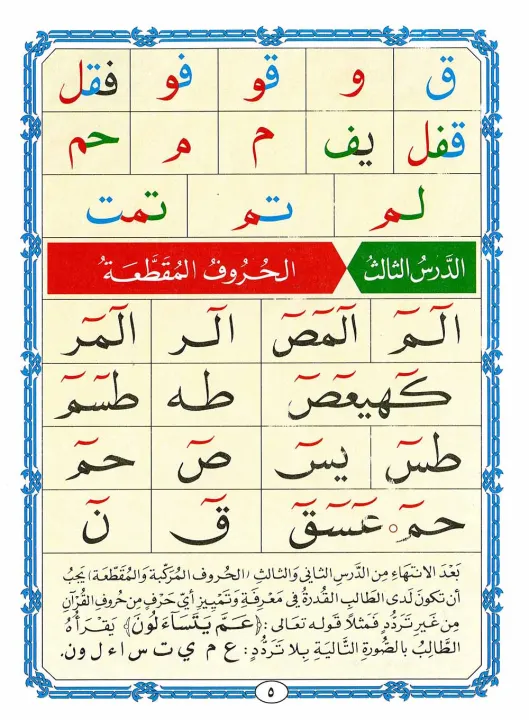 ق و قو فو فقل
قفل يف م م حم
لم تم تمت
الدَّرسُ الثالثُ الحُرُوفُ المُقَطَّعَةُ
الٓمٓ الٓمٓصٓ الٓر الٓمٓر
كٓهيعٓصٓ طه طسٓمٓ
طسٓ يسٓ صٓ حمٓ
حمٓ ٥ عٓسٓقٓ قٓ نٓ
بَعْدَ الانتهَاءِ مِن الدَّرسِ الثاني وَالثالثِ (الحُروف المُرَكّبة وَالمُقَطّعَة) يَجبُ
أن تكونَ لَدى الطّالبِ القُدرة في مَعرِفَةِ وَتَمْييزِ أيّ حَرْفٍ مِن حُروفِ القُرآنِ
مِن غَيرِ تَردُّدٍ فَمثلاً قوله تعالى : ﴿عَمَّ يَتَسَاءَلُونَ﴾ يَقرأهُ
الطّالبُ بالصُّورَةِ التّاليَةِ بِلا تَردُّدٍ: ع م ي ت س ا ء ل و ن.
٥